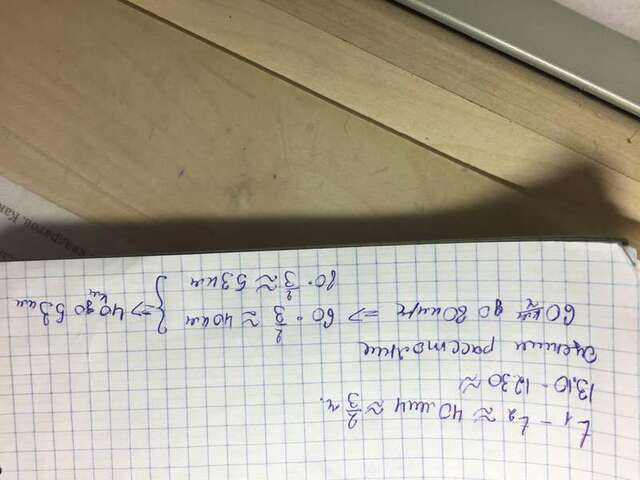 t₁ - t₂ ≈ 40 мин ≈ 2/3 ч.
13.10 - 12.30 ≈
Оценим расстояние
60 км/ч до 80 км/ч => 60 · 2/3 ≈ 40 км } => 40 км до 53 км
80 · 2/3 ≈ 53 км
квадратов. Как